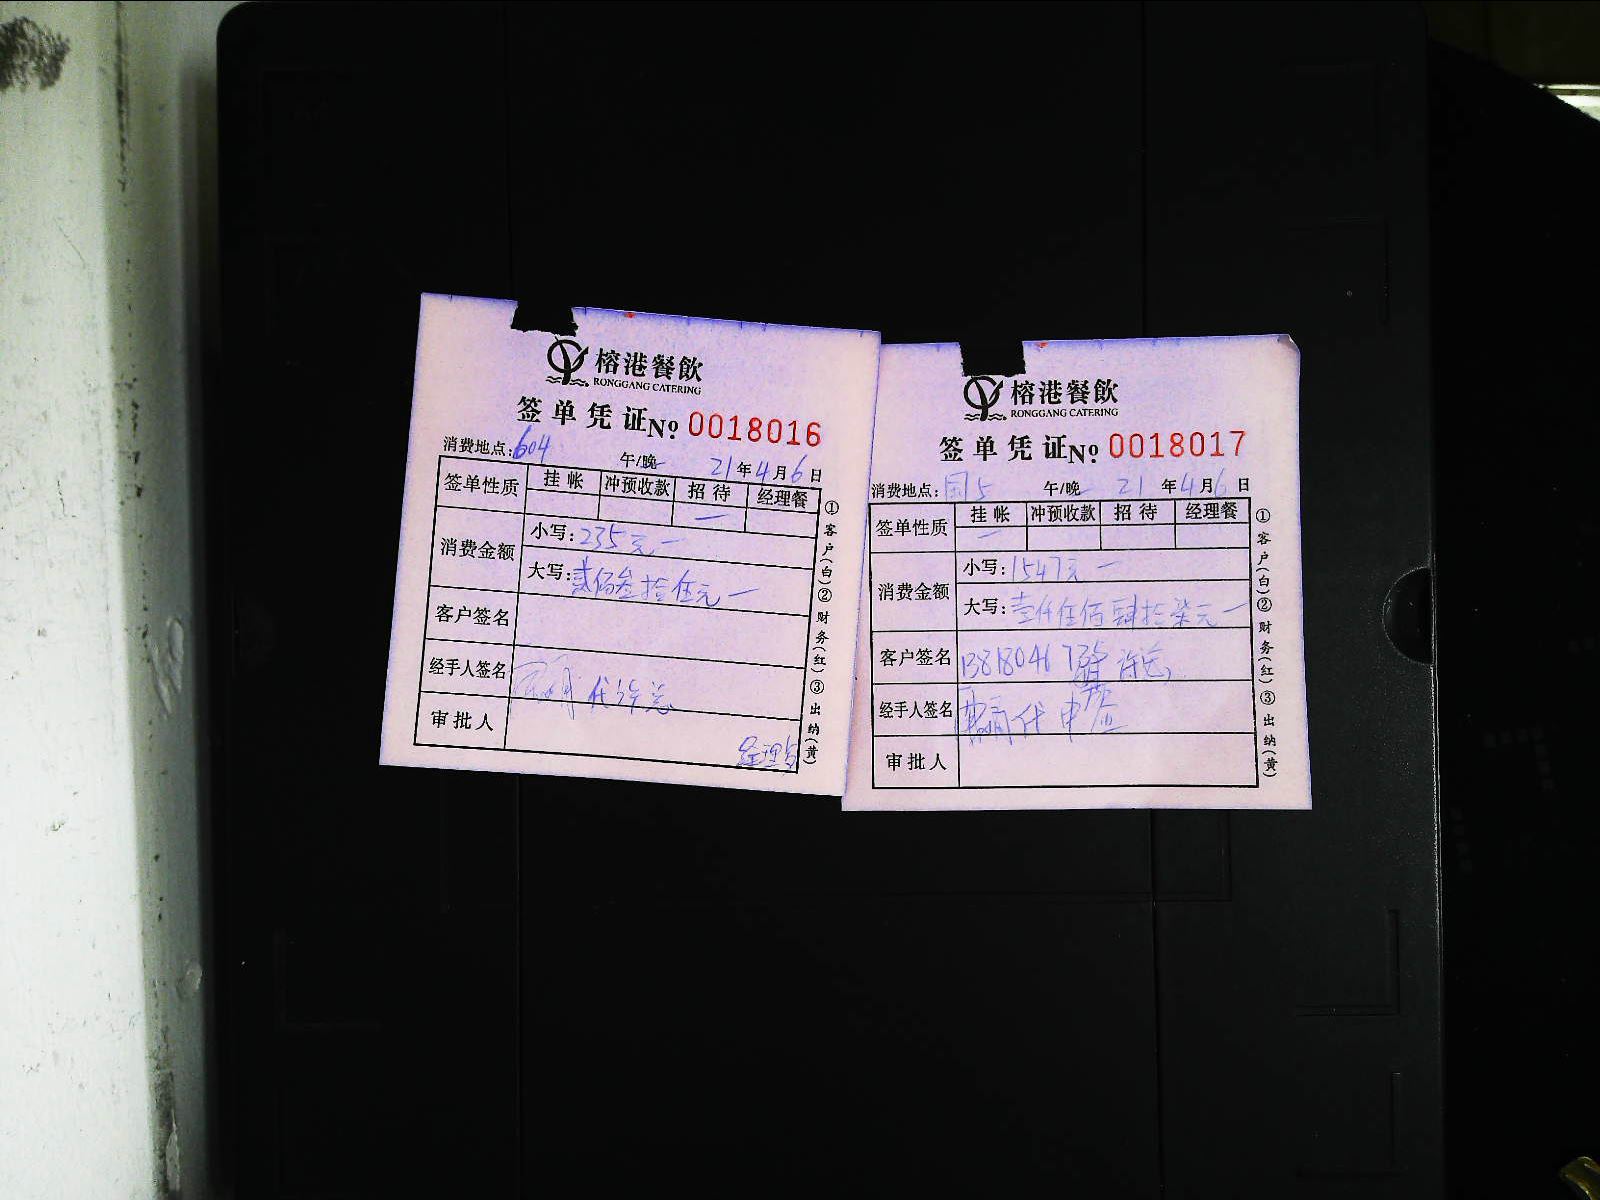 榕港餐飲
RONGGANG CATERING
签单凭证 № 0018016
消费地点: 604 午/晚 21年4月6日
签单性质 挂帐 冲预收款 招待 经理餐
消费金额 小写: 235元
大写: 贰佰叁拾伍元
客户签名
经手人签名 代许总
审批人
①客户(白)②财务(红)③出纳(黄)
榕港餐飲
RONGGANG CATERING
签单凭证 № 0018017
消费地点: 国5 午/晚 21年4月6日
签单性质 挂帐 冲预收款 招待 经理餐
消费金额 小写: 1547元
大写: 壹仟伍佰肆拾柒元
客户签名 许总
经手人签名 代申
审批人
①客户(白)②财务(红)③出纳(黄)